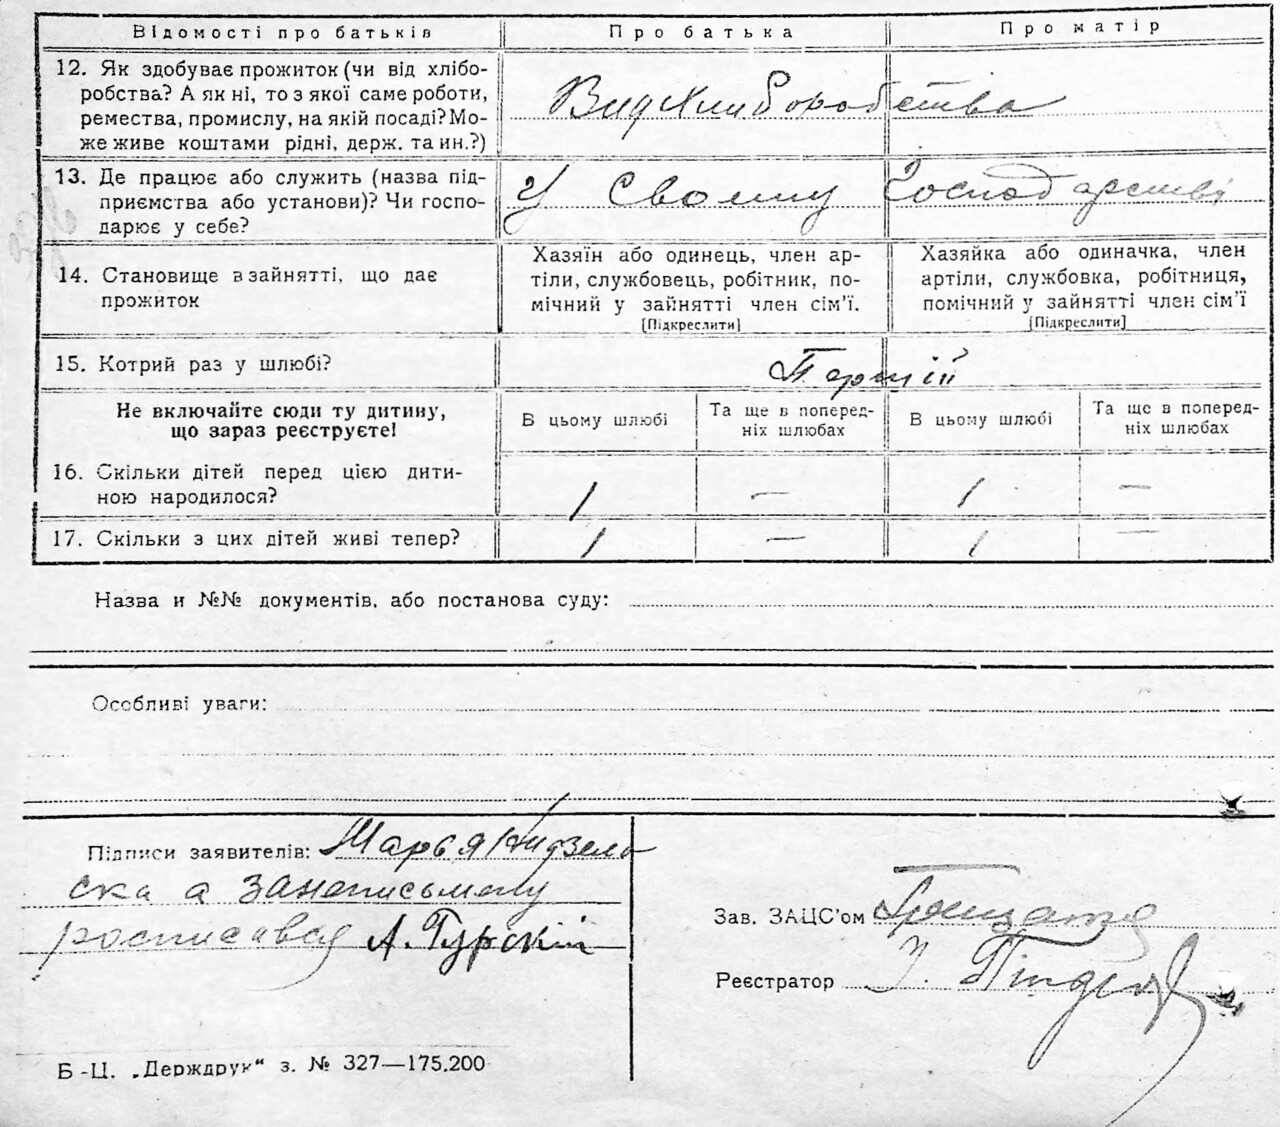 Відомості про батьків
Про батька
Про матір
12. Як здобуває прожиток (чи від хлібо-
робства? А як ні, то з якої саме роботи,
ремества, промислу, на якій посаді? Мо-
же живе коштами рідні, держ. та ин.?)
Видхлиборобства
13. Де працює або служить (назва під-
приємства або установи)? Чи госпо-
дарює у себе?
У своиму господарстві
14. Становище в зайнятті, що дає
прожиток
Хазяїн або одинець, член ар-
тіли, службовець, робітник, по-
мічний у зайнятті член сім'ї.
[Підкреслити]
Хазяйка або одиначка, член
артіли, службовка, робітниця,
помічний у зайнятті член сім'ї
[Підкреслити]
15. Котрий раз у шлюбі?
Перший
Не включайте сюди ту дитину,
що зараз реєструєте!
В цьому шлюбі
Та ще в поперед-
ніх шлюбах
В цьому шлюбі
Та ще в поперед-
ніх шлюбах
16. Скільки дітей перед цією дити-
ною народилося?
1 — 1 —
17. Скільки з цих дітей живі тепер?
1 — 1 —
Назва и №№ документів, або постанова суду:
Особливі уваги:
Підписи заявителів: Марья Кидзела
ска а занеписьмену
росписався А. Гурский
Зав. ЗАЦС'ом
Реєстратор І.
Б-Ц. „Держдрук“ з. № 327—175.200